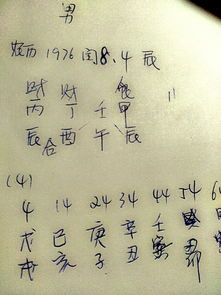 男
农历 1976 闰8.4 辰
财 财 食
丙 丁 壬 甲 11
辰合酉 午 辰
(4)
4 14 24 34 44 54 6
戊 己 庚 辛 壬 癸
戌 亥 子 丑 寅 卯